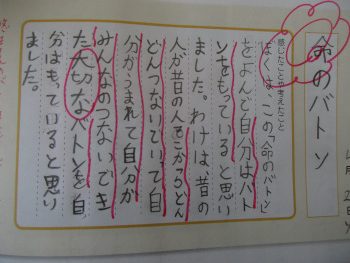 命のバトン
感じたことや考えたこと
ぼくは、この「命のバトン」
をよんで自分はバト
ンをもっていると思い
ました。わけは、昔の
人が昔の人もこからどん
どんつないでいて自
分がうまれて自分が
みんなのつないでき
た大切なバトンを自
分はもっていると思い
ました。